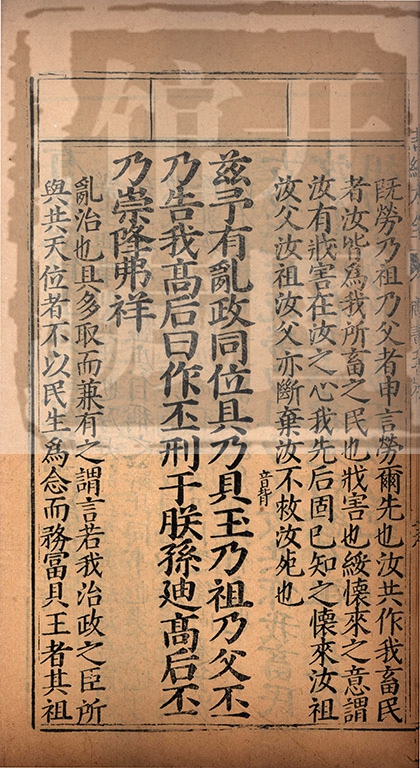 旣勞乃祖乃父者申言勞爾先也汝共作我畜民
者汝皆爲我所畜之民也戕害也綏懷來之意謂
汝有戕害在汝之心我先后固已知之懷來汝祖
汝父汝祖汝父亦斷棄汝不救汝死也
茲予有亂政同位具乃貝玉乃祖乃父丕
乃告我高后曰作丕刑于朕孫迪高后丕
乃崇降弗祥
亂治也具多取而兼有之謂言若我治政之臣所
與共天位者不以民生爲念而務富具玉者其祖